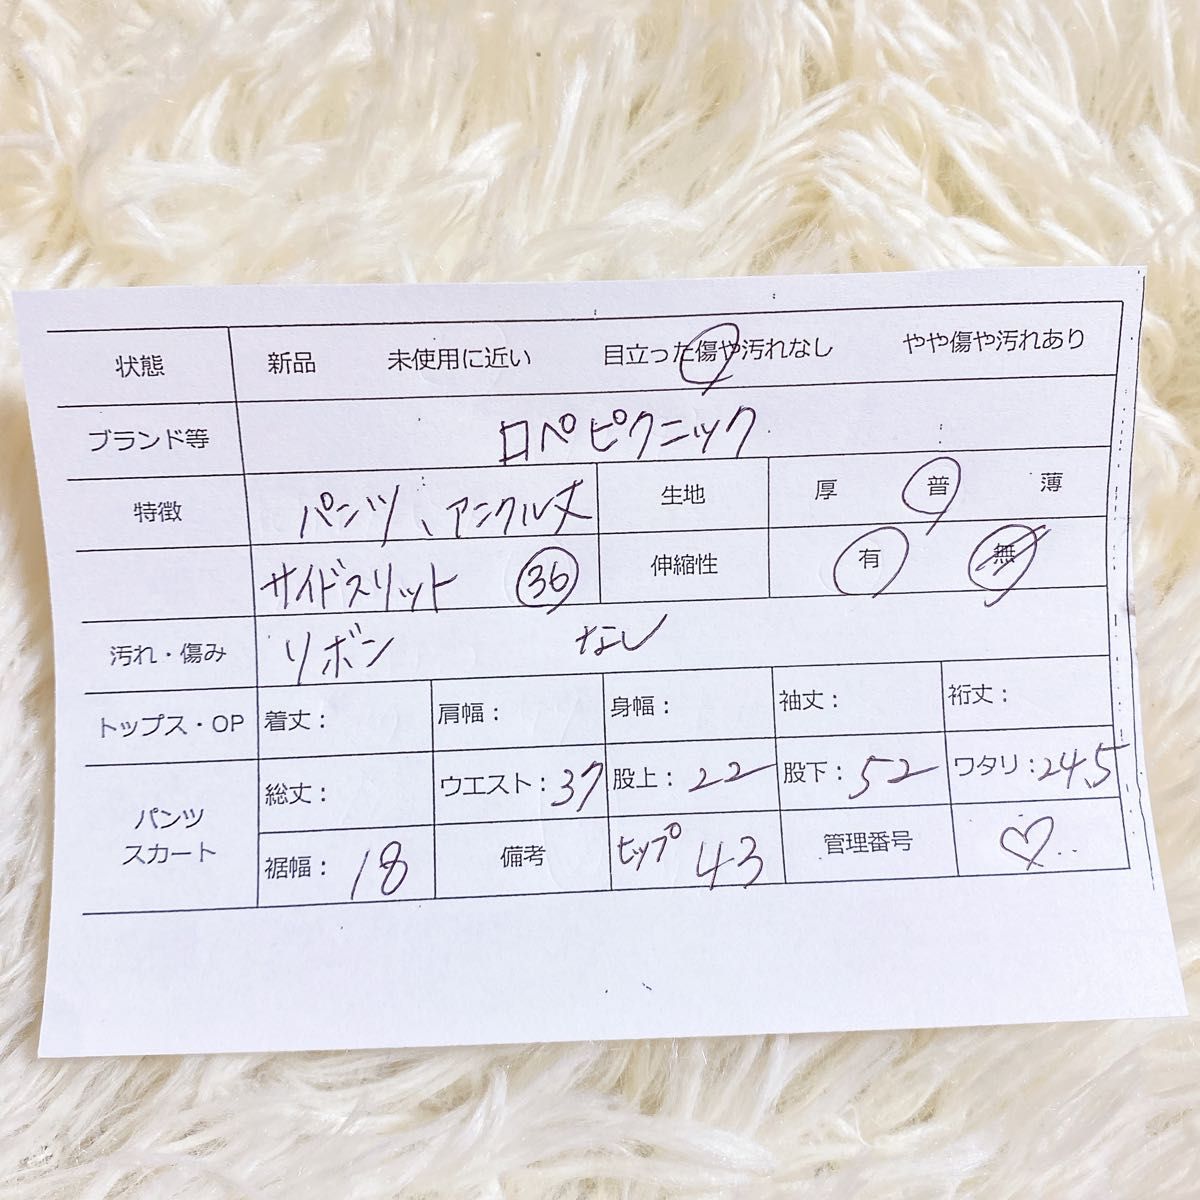 状態 新品 未使用に近い 目立った傷や汚れなし やや傷や汚れあり
ブランド等 ロペピクニック
特徴 パンツ、アンクル丈 生地 厚 普 薄
サイドスリット 36 伸縮性 有 無
汚れ・傷み リボン なし
トップス・OP 着丈： 肩幅： 身幅： 袖丈： 裄丈：
パンツ スカート
総丈： ウエスト：37 股上：22 股下：52 ワタリ：24.5
裾幅：18 備考 ヒップ 43 管理番号 ♡